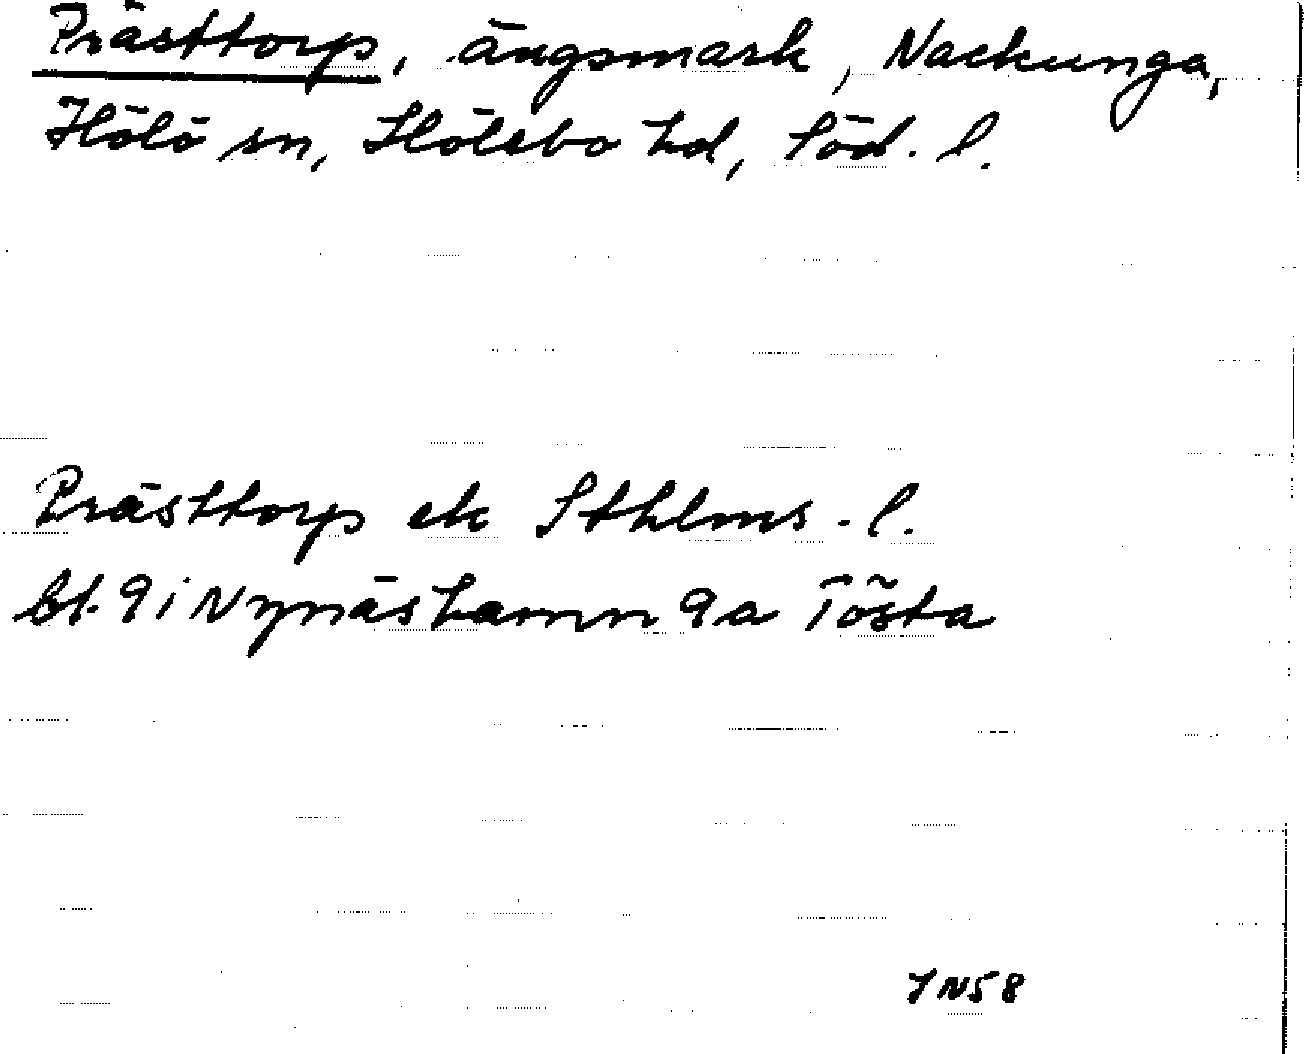 Prästtorp, ängsmark, Nackunga,
Hölö sn, Hölebo hd, Söd. l.
Prästtorp ek Sthlms. l.
bl. 9 i Nynäshamn 9a Tösta
YN58